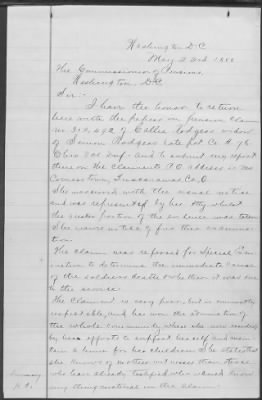 Washington D.C.
May 23rd 1888
The Commissioner of Pensions,
Washington, D.C.
Sir:-
I have the honor to return
here with the papers in pension claim
no. 312,692 of Callie Rodgers widow
of Simon Rodgers late pvt Co. H. 78
Ohio Vol. Inf. and to submit my report
thereon the Claimants P.O. address is
Tuscarawas Co. O
She was served with the usual notice
and was represented by her Atty whilst
the greater portion of the evidence was taken
She waived notice of further examina-
tion.
The claim was referred for Special Exami-
nation to determine the immediate cause
of the soldiers death & whether it was due
to the service.
The Claimant is very poor, but is eminently
respectable, and has won the admiration of
the whole community where she now resides
by her efforts to support herself and main-
tain a home for her children. She states that
she knows of no other witnesses than those
who have already testified who would know
any thing material in the claim.